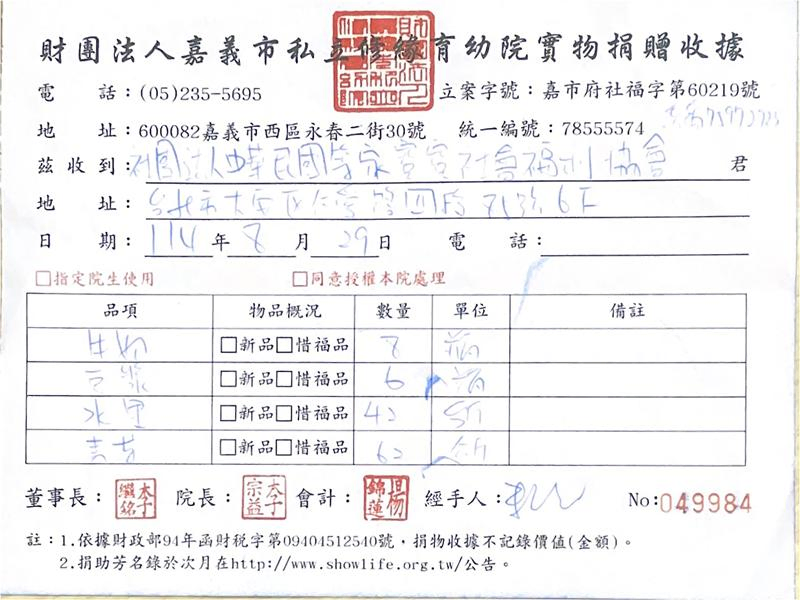 財團法人嘉義市私立修緣育幼院實物捐贈收據
電話：(05)235-5695 立案字號：嘉市府社福字第60219號
地址：600082嘉義市西區永春二街30號 統一編號：78555574
茲收到：社團法人中華民國等家寶寶社會福利協會 君
地址：台北市大安區仁愛路四段 6F
日期：114年8月29日 電話：
□指定院生使用 □同意授權本院處理
品項 物品概況 數量 單位 備註
牛奶 □新品□惜福品 8 瓶
豆漿 □新品□惜福品 6
水果 □新品□惜福品 42
□新品□惜福品 62
董事長： 院長： 會計：楊錦蓮 經手人： No:049984
註：1.依據財政部94年函財稅字第09404512540號，捐物收據不記錄價值(金額)。
2.捐助芳名錄於次月在http://www.showlife.org.tw/公告。